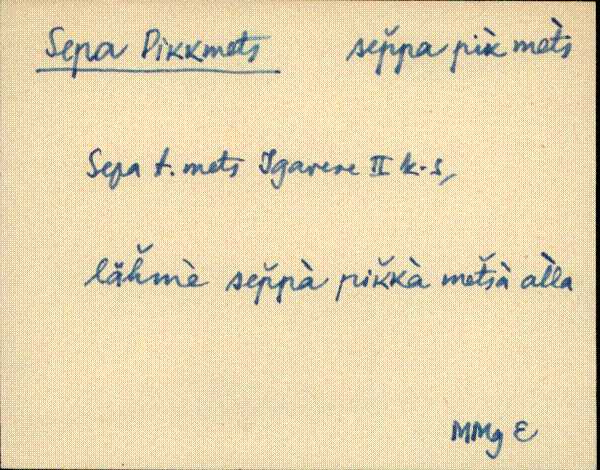 Sepa Pikkmets sep̌pa pik̀ met̀s
Sepa t. mets Igavere II k-s,
läȟmè sep̌pà pǐkkà met̆sà al̀la
MMg E